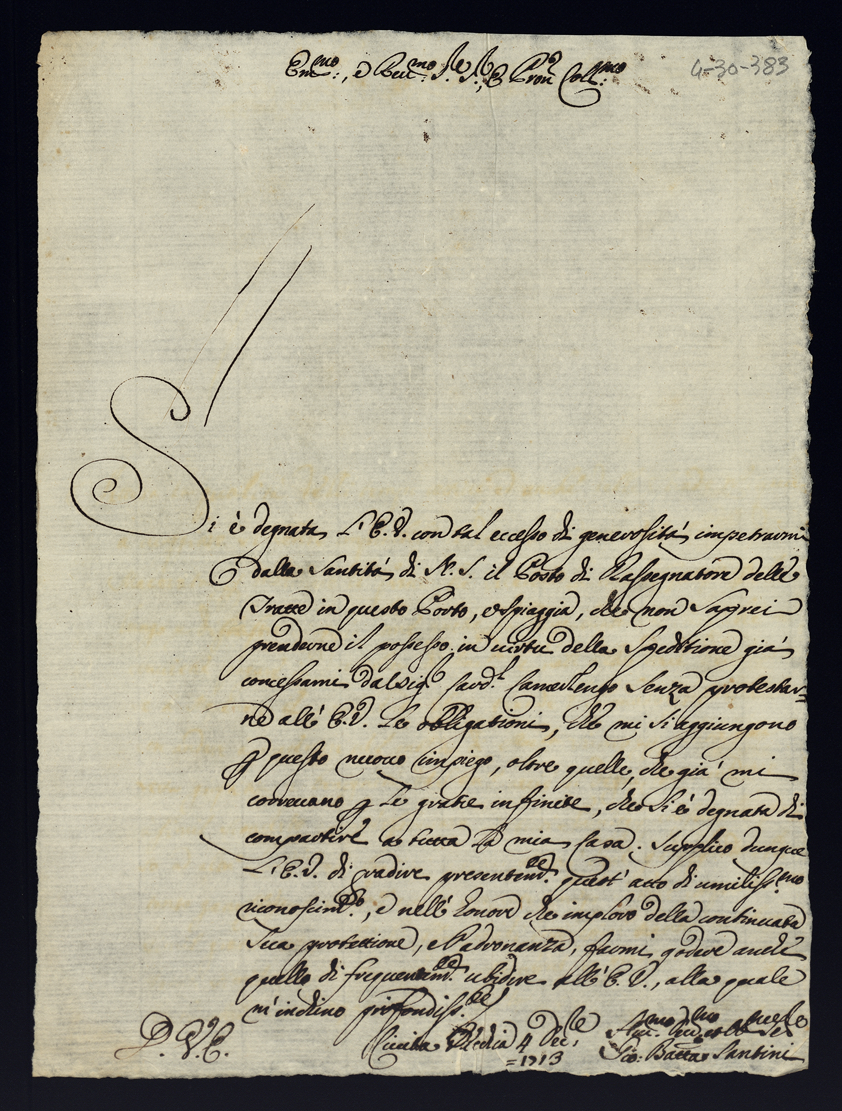 Em:mo, e Rev:mo Sig:re Sig:re, e Pron Col:mo
4-30-383
Si è degnata L'E.V. con tal eccesso di generosità impetrarmi
dalla Santità di N. S. il Posto di Rassegnatore delle
Tratte in questo Porto, e spiaggia, che non saprei
prenderne il possesso in virtù della Speditione già
concessami dal Sig.r Card.l Camerlengo senza protestar=
ne all'E.V. le obligationi, che mi si aggiungono
p questo nuovo impiego, oltre quelle, che già mi
correvano p le gratie infinite, che si è degnata di
compartire a tutta la mia Casa. Supplico dunque
L'E.V. di gradire presentem.te quest'atto di umiliss:mo
riconoscim.to, e nell'honore che imploro della continuata
sua protettione, e Padronanza, farmi godere anche
quello di frequentem.te ubidire all'E.V., alla quale
m'inchino profondiss.te
D. V. E.
Civita Vecchia 4 Dec.
=1713
Gio: Batta Santini